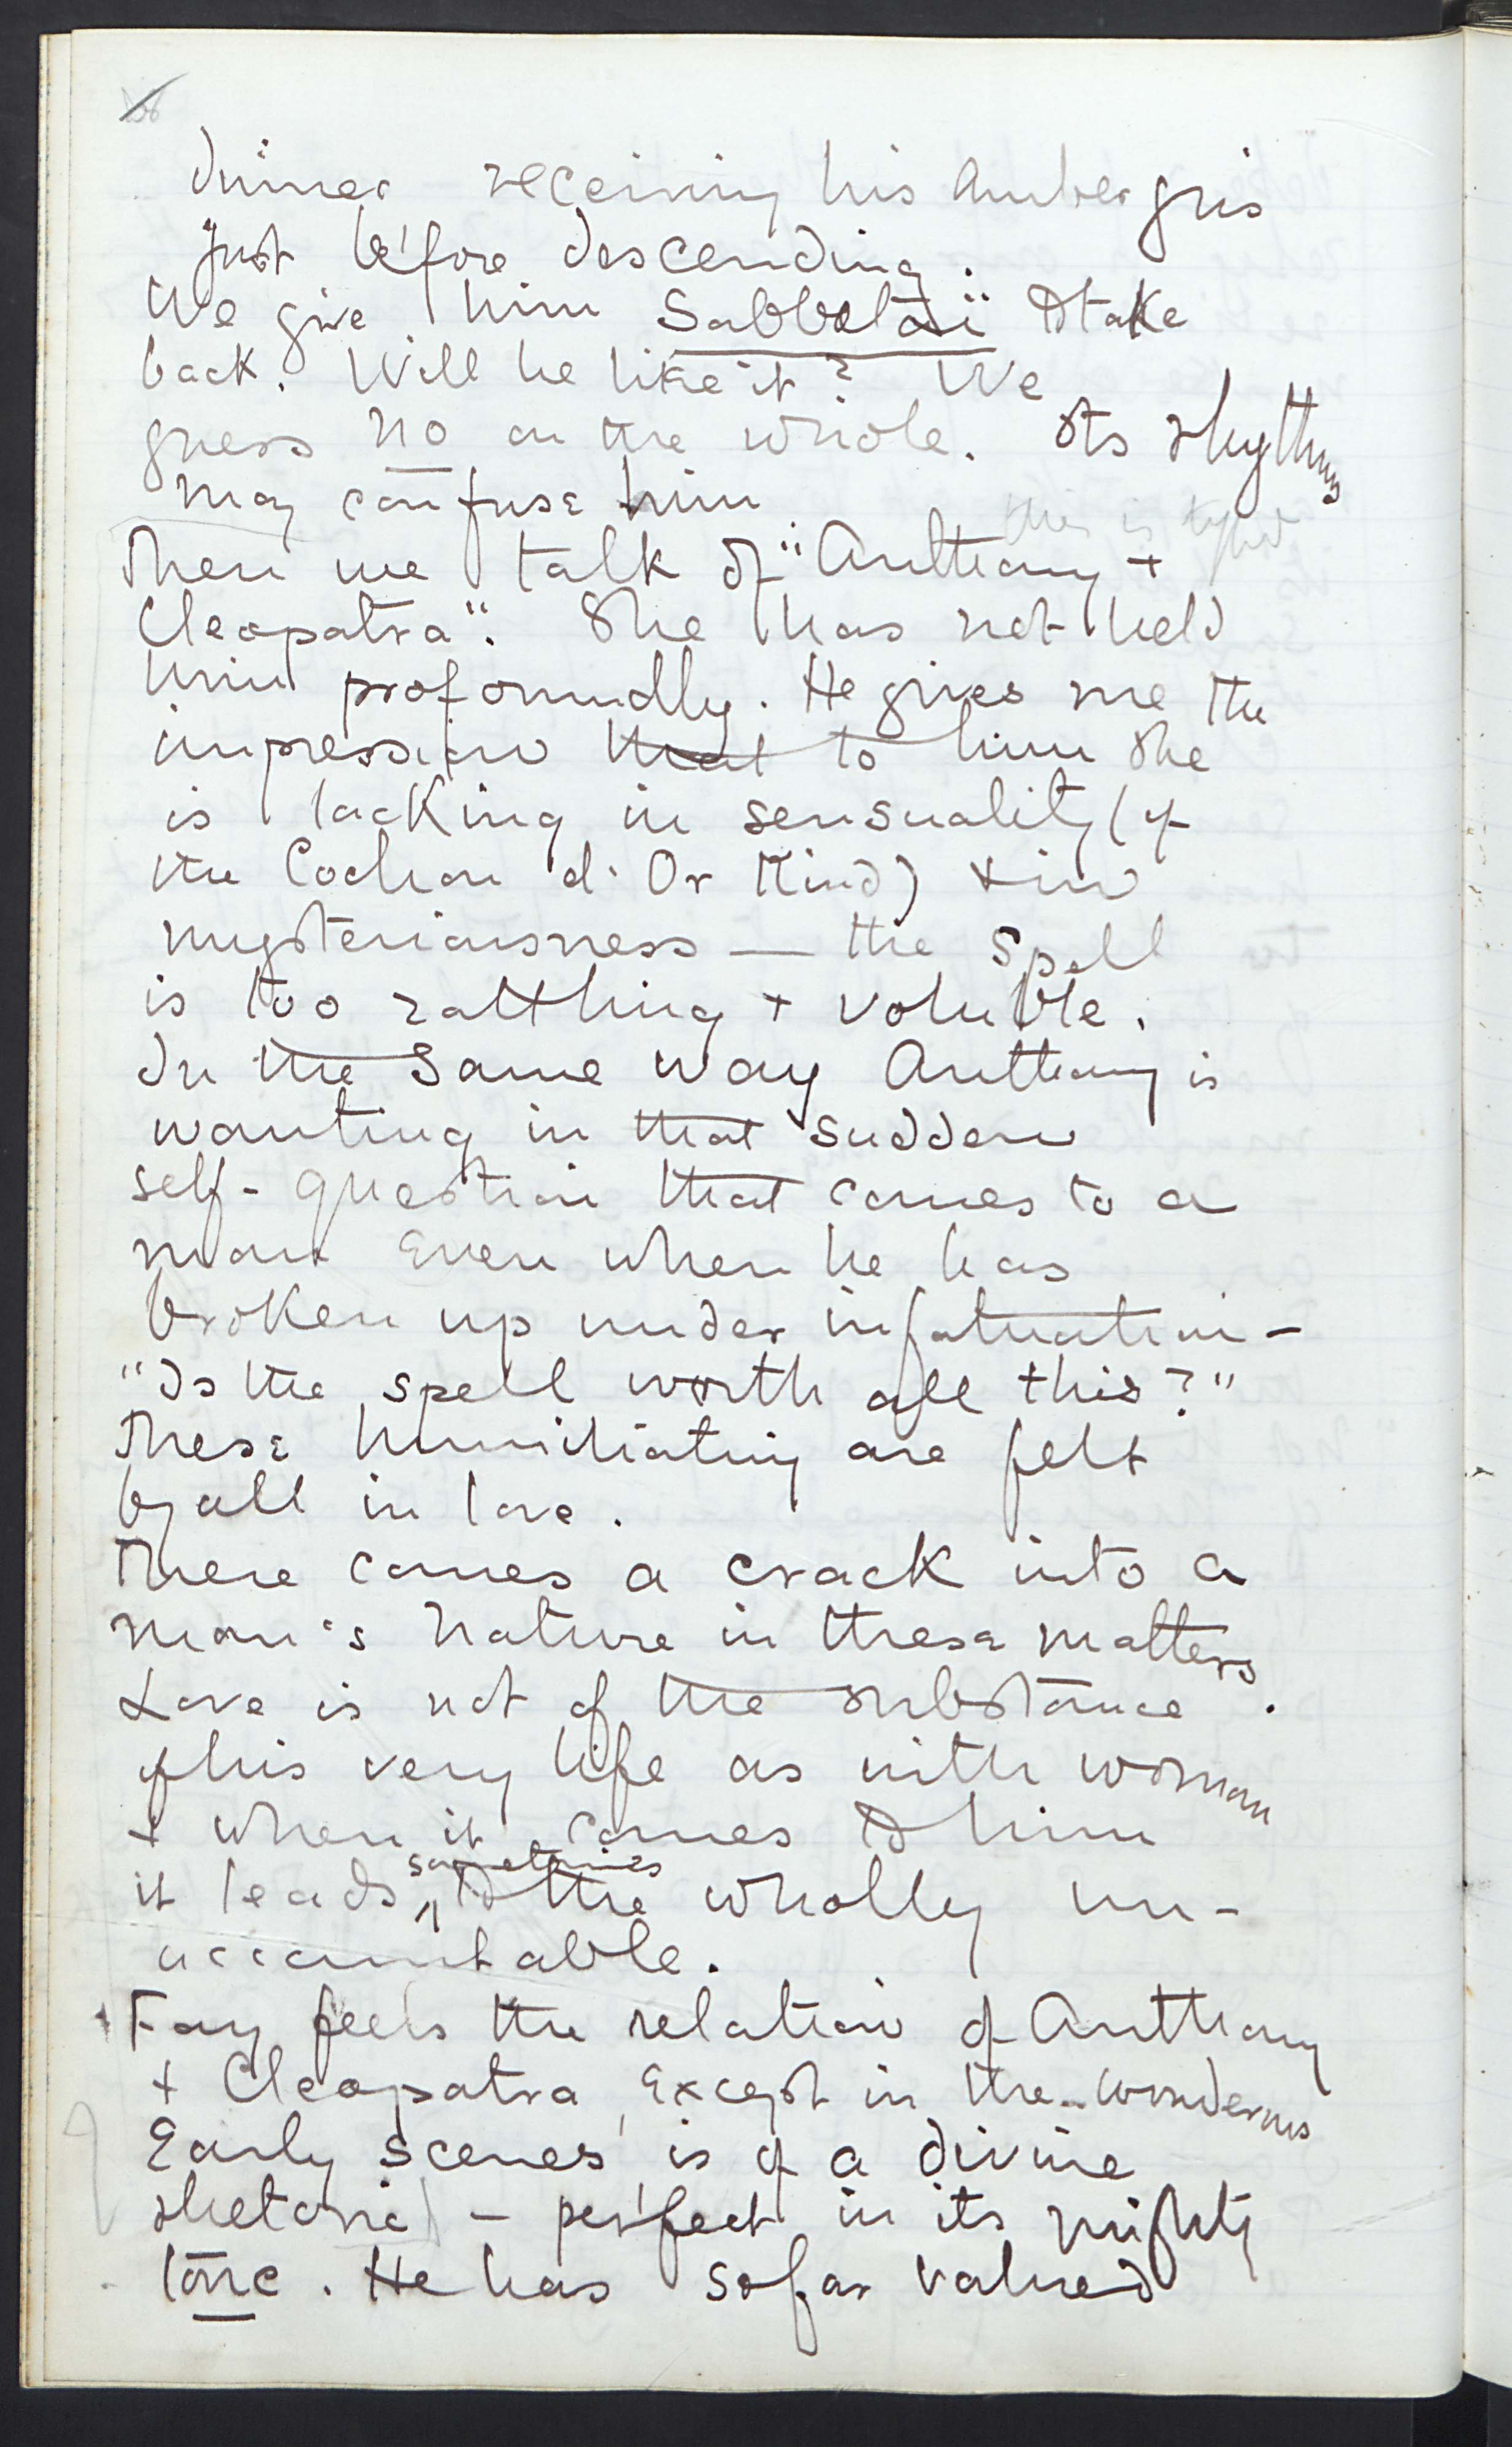 dinner receiving his Ambergris
just before descending.
We give him Sabbataï to take
back. Will he like it? We
guess no on the whole. Its rhythms
may confuse him
this is typed
Then we talk of "Anthony +
Cleopatra". She has not held
him profoundly. He gives me the
impression that to him she
is lacking in sensuality (of
the Cochon d'Or Kind) & in
mysteriousness — the spell
is too rattling + voluble.
In the same way Anthony is
wanting in that sudden
self-question that comes to a
man even when he has
broken up under infatuation –
"Is the spell worth all this?"
These humiliating are felt
by all in love.
There comes a crack into a
man's nature in these matters.
Love is not of the substance
of his very life as with woman
+ when it comes to him
it leads sometimes to the wholly un-
accountable.
Fay feels the relation of Anthony
+ Cleopatra, except in the wonderous
Early scenes, is of a divine
rhetoric – perfect in its mighty
tone. He has so far valued